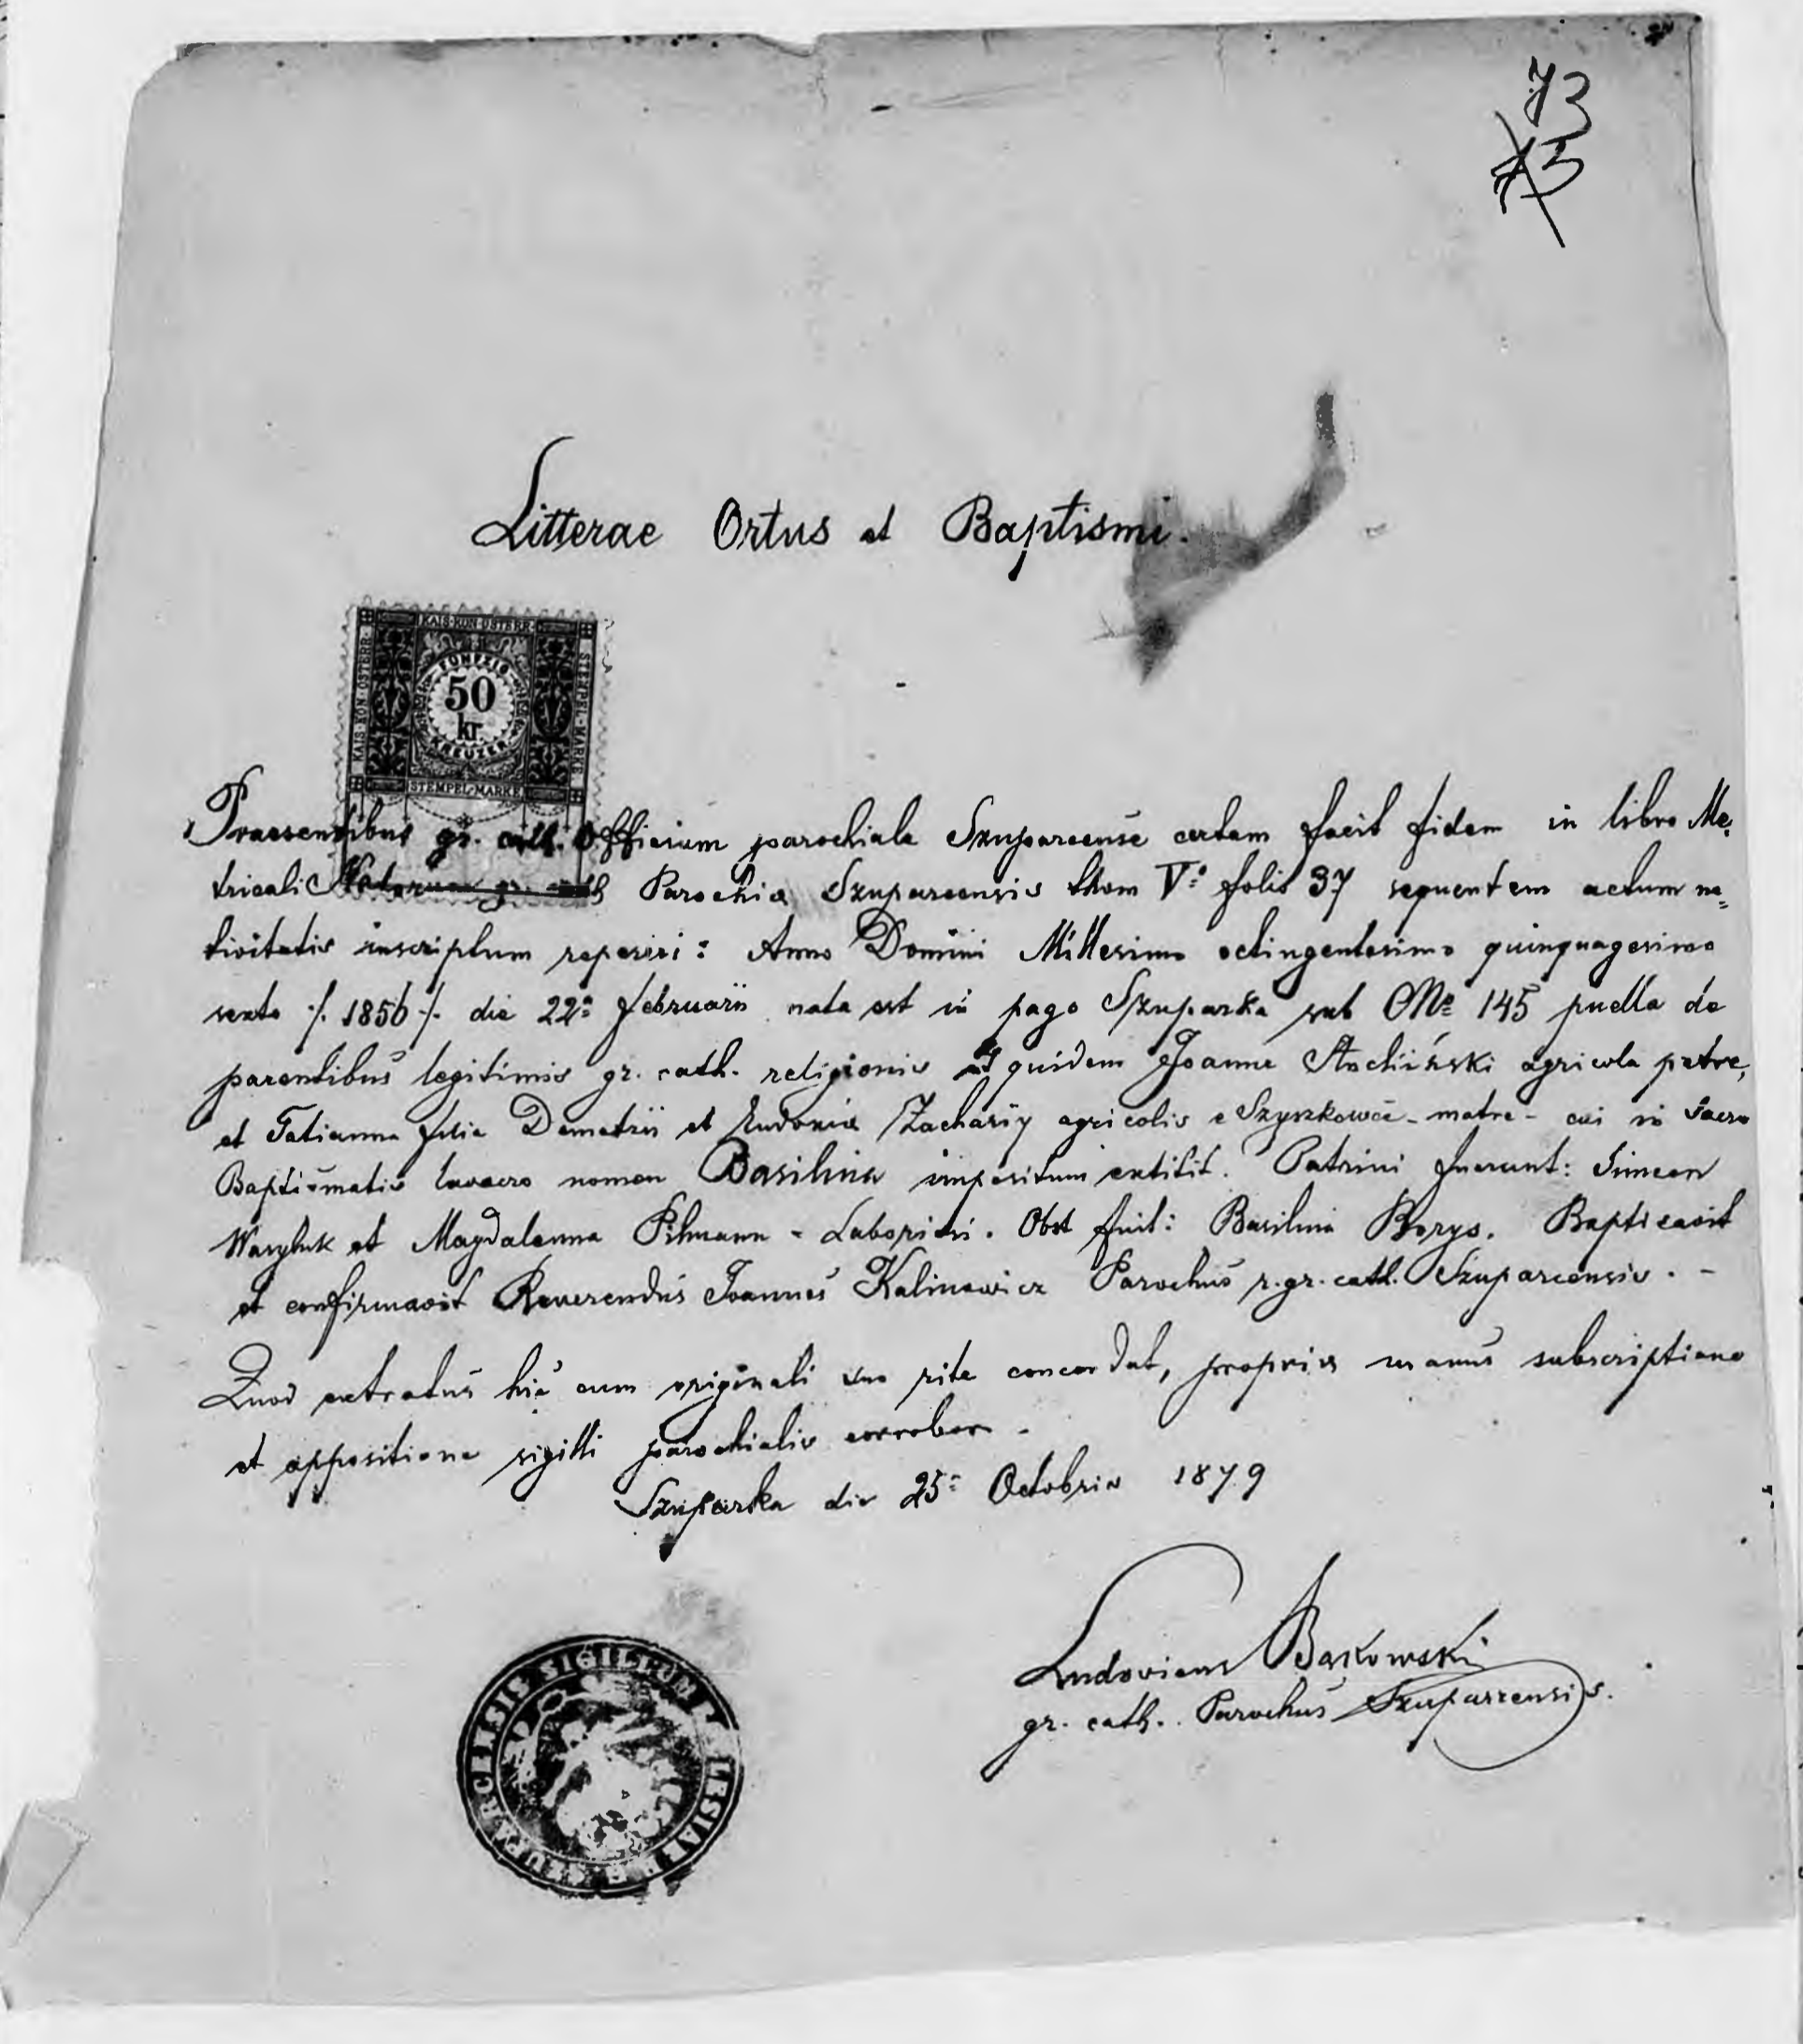 73
73
Litterae Ortus et Baptismi.
KAIS·KÖN·ÖSTERR·
KAIS·KÖN·ÖSTERR·
STEMPEL-MARKE
FÜNFZIG
50
kr.
KREUZER
STEMPEL-MARKE
Praesentibus gr. cath. Officium parochiale Szuparcense certam facit fidem in libro Me=
tricali Natorum gr. cath Parochia Szuparcensis thom V:º folio 37 sequentem actum na=
tivitatis inscriptum reperiri: Anno Domini Millesimo octingentesimo quinquagesimo
sexto /. 1856 /. die 22ª februarii nata est in pago Szuparka sub Nº 145 puella de
parentibus legitimis gr. cath. religionis et quidem Joanne Stachiński agricola patre,
et Tatianna filia Demetrii et Eudoxia Zacharÿ agricolis e Szyszkowce - matre - cui in sacro
Baptismatis lavacro nomen Basilina impositum extitit. Patrini fuerunt: Simeon
Wasyluk et Magdalenna Pilmann - Laboriosi. Obst fuit: Basilina Borys. Baptisavit
et confirmavit Reverendus Joannes Kalinowicz Parochus r. gr. cath. Szuparcensis. -
Quod extratus hic cum originali suo rite concordat, propria manus subscriptione
et appositione sigilli parochialis corrobor -
Szuparka die 25ª Octobris 1879
Ludovicus Barkowski
gr. cath. Parochus Szuparcensis.
SIGILLUM